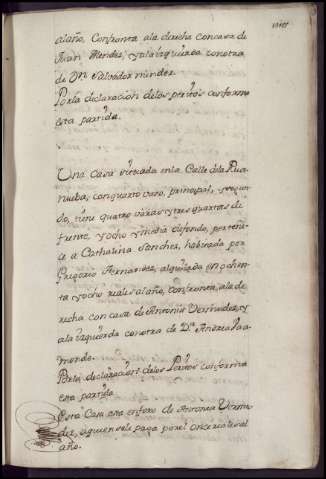 al año, Confronta ala dẽcha con casa de
Juan Mendez, y ala izquierda con otra
de Dⁿ Salvador mendez.
Por la declaracion delos peritos conforme
esta partida.
Una Casa sittuada en la Calle dela Rua
nueba, con quarto vajo, principal, y segun-
do, tiene quatro varas y tres quartas de
frente, y ocho y media de fondo, pertene-
ce a Cathalina Sanchez, habitada por
Gregorio Fernandez, alquilada en ochen-
ta y ocho reales al año, confronta, ala de-
recha con casa de Antonio Vermudez, y
ala izquierda con otra de Dª Andrea Vaa-
monde.
Por la declaracion delos Peritos conforme
esta partida
Esta Casa esta en foro de Antonio Vermu-
dez, aquien se le paga por el once reales al
año.